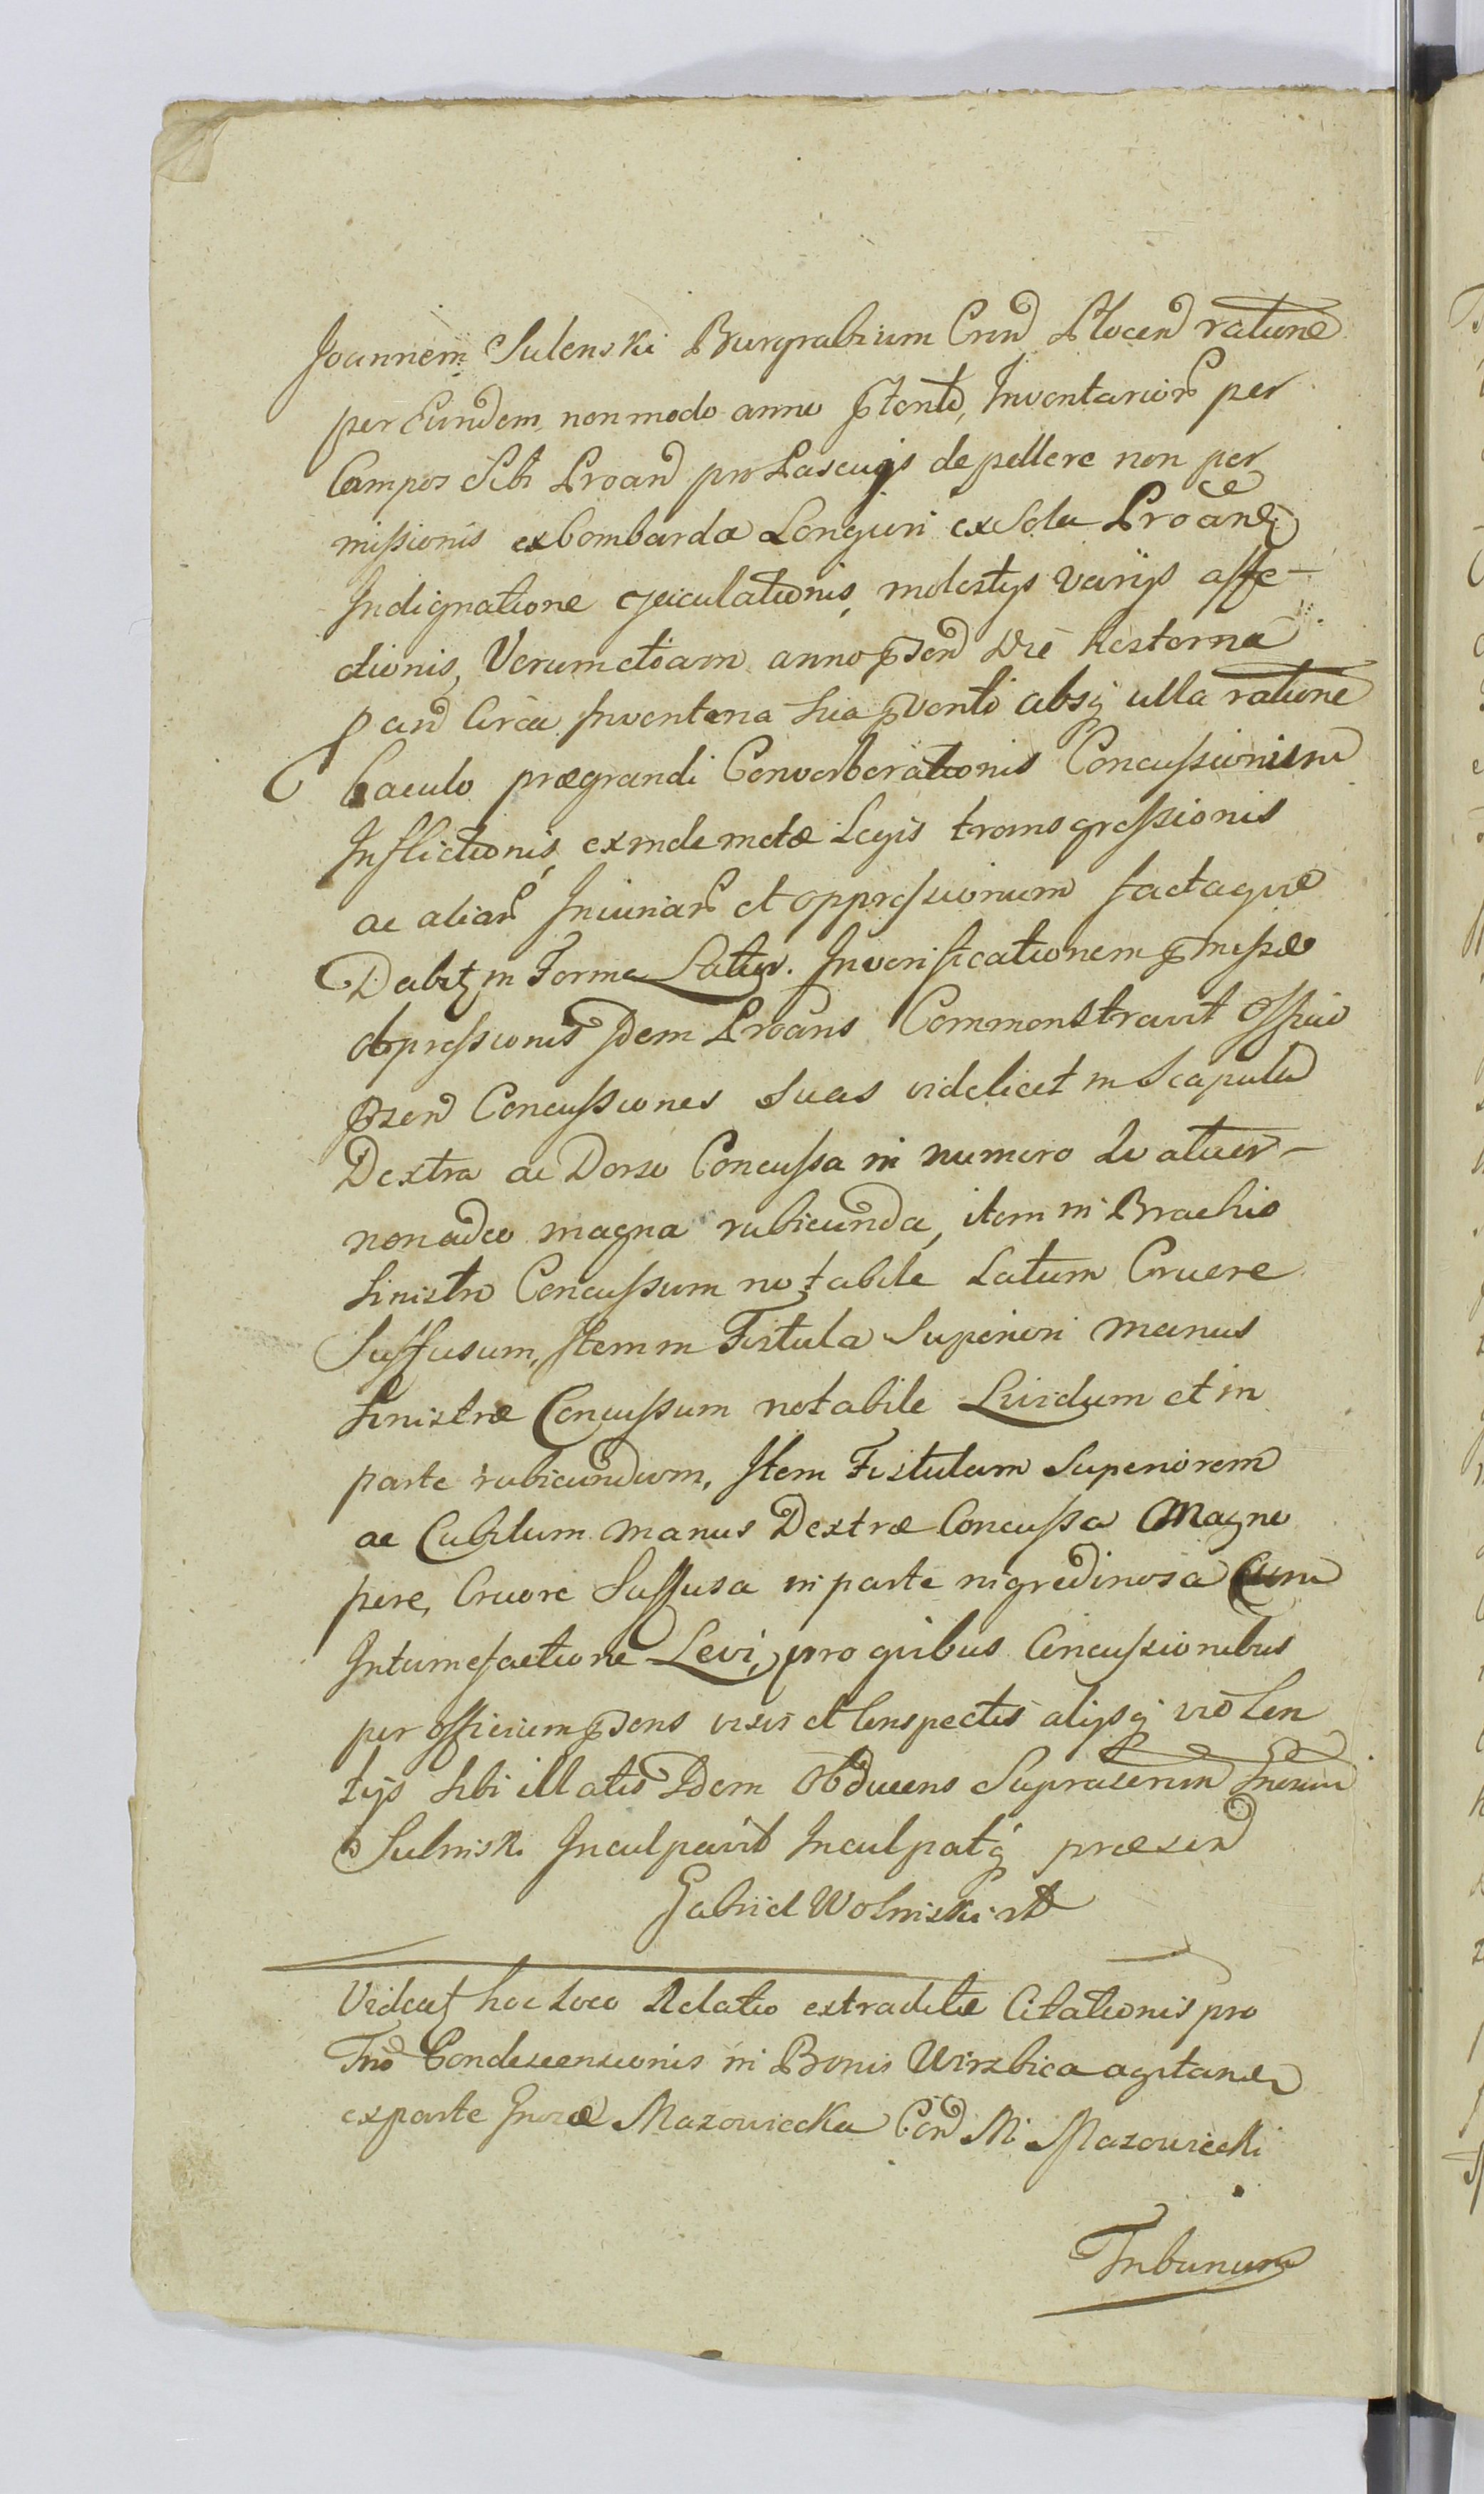 Joannem Sulenski Burgrabium Crnd Plocen ratione
per Eundem non modo anno ptento, Inventarior per
Campos Sibi Proand pro Pascuijs depellere non per
missionis ex bombarda Longiori ex Sola Proane
Indignatione ejaculationis, molestijs varijs affe-
ctionis, Verumetiam anno psen Die hesterna
pand Circa Inventaria sua pventi absq ulla ratione
baculo prægrandi Converberationis Concussionum
Inflictionis, exinde metæ Legis transgressionis
ac aliar Iniuriar et oppressionum factaque
Dabitz in Forma Latius. In verificationem pmissæ
oppressionis Idem Proans Commonstravit Officio
psen Concussiones Suas videlicet in Scapula
Dextra ac Dorso Concussa in numero Quatuor-
non adeo magna rubicunda, item in Brachio
Sinistro Concussum notabile Latum Cruore
Suffusum, Item in Fistula Superiori manus
Sinistræ Concussum notabile Lividum et in
parte rubicundum, Item Fistulam Superiorem
ac Cubitum manus Dextræ Concussa Magno
pere, Cruore Suffusa in parte nigredinosa Cum
Intumefactione Levi, pro quibus Concussionibus
per officium psens visis et Conspectis alijsq violen
tijs sibi illatis Idem Obducens Suprascrin
Sulinski Inculpavit Inculpatq præsen
Gabriel Wolniski
Videatz hoc loco Relatio extraditæ Citationis pro
Tno Condescensionis in Bonis Wirzbica agitan
ex parte Mazowiecka Con M Mazowiecki
Tribunum